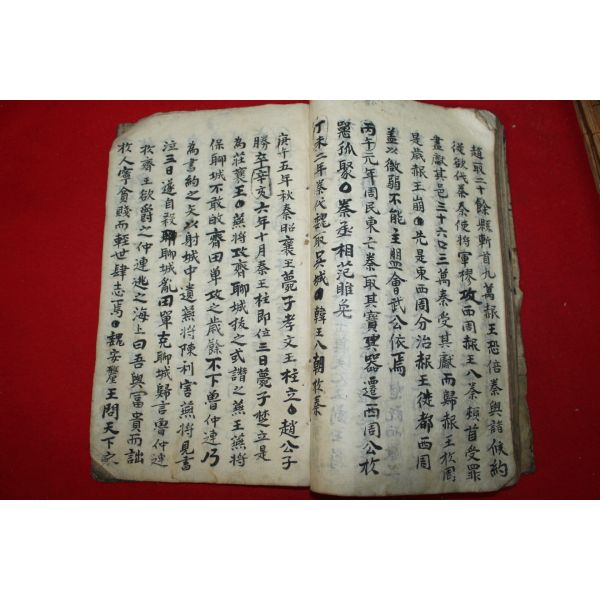 趙取二十餘縣斬首九萬赧王恐倍秦與諸侯約
從欲伐秦秦使將軍摎攻西周赧王入秦頓首受罪
盡獻其邑三十六口三萬秦受其獻而歸赧王於周
是歲赧王崩先是東西周分治赧王徙都西周
盖以微弱不能主盟會武公依焉
丙午元年周民東亡秦取其寶器遷西周公於
𢠸狐聚秦丞相范睢免
丁未二年秦伐魏取吳城韓王入朝於秦
庚午五年秋秦昭襄王薨子孝文王柱立趙公子
勝卒辛亥六年十月秦王柱即位三日薨子楚立是
為莊襄王燕將攻齊聊城拔之或譖之燕王燕將
保聊城不敢歸齊田單攻之歲餘不下魯仲連乃
為書約之矢以射城中遺燕將陳利害燕將見書
泣三日遂自殺聊城亂田單克聊城歸言魯仲連
於齊王欲爵之仲連逃之海上曰吾與富貴而詘
於人寧貧賤而輕世肆志焉魏安釐王問天下之